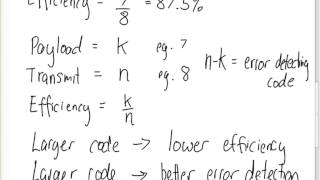 Efficiency = 7/8 = 87.5%
Payload = k eg. 7
Transmit = n eg. 8
n-k = error detecting code
Efficiency = k/n
Larger code → lower efficiency
Larger code → better error detection